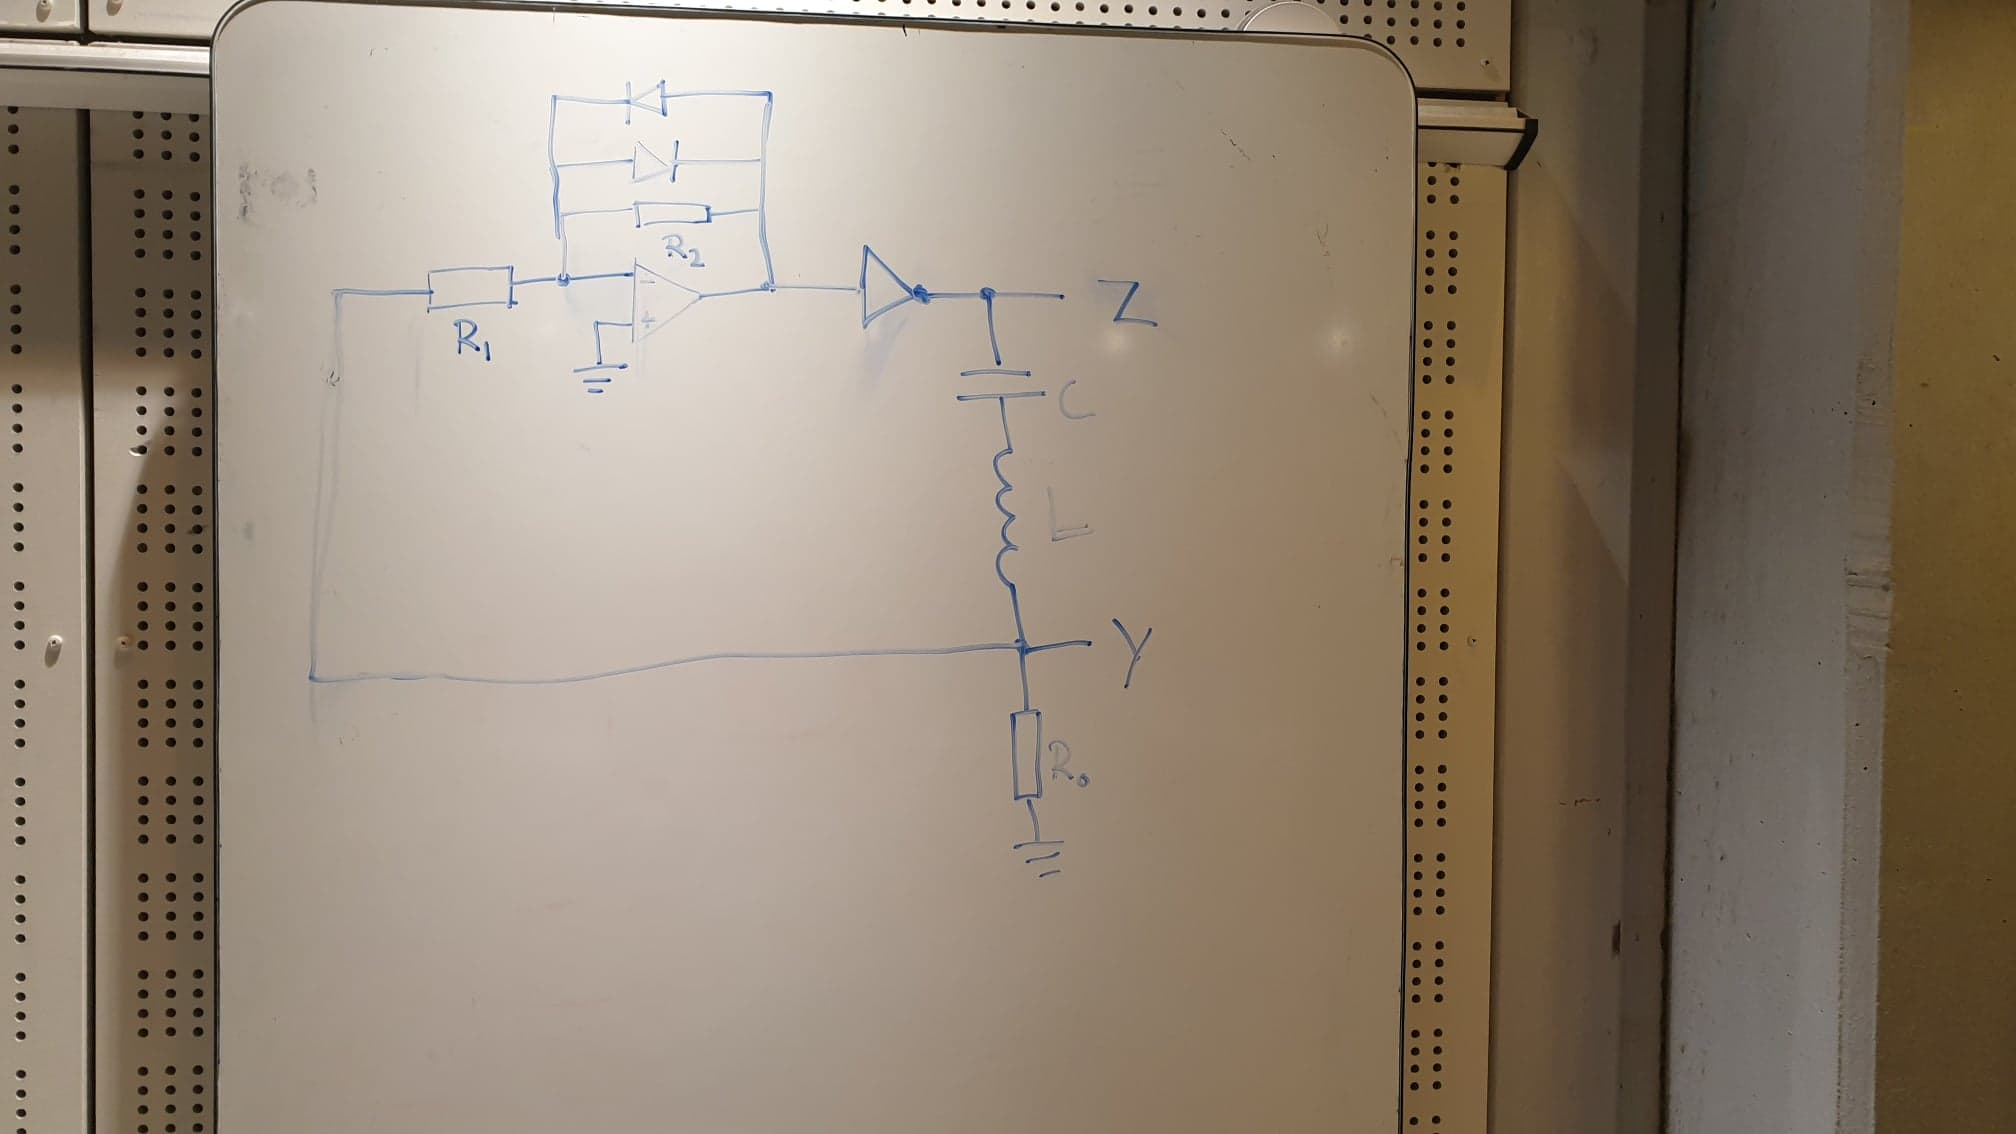 R₂
−
+
R₁
Z
C
L
Y
R₀